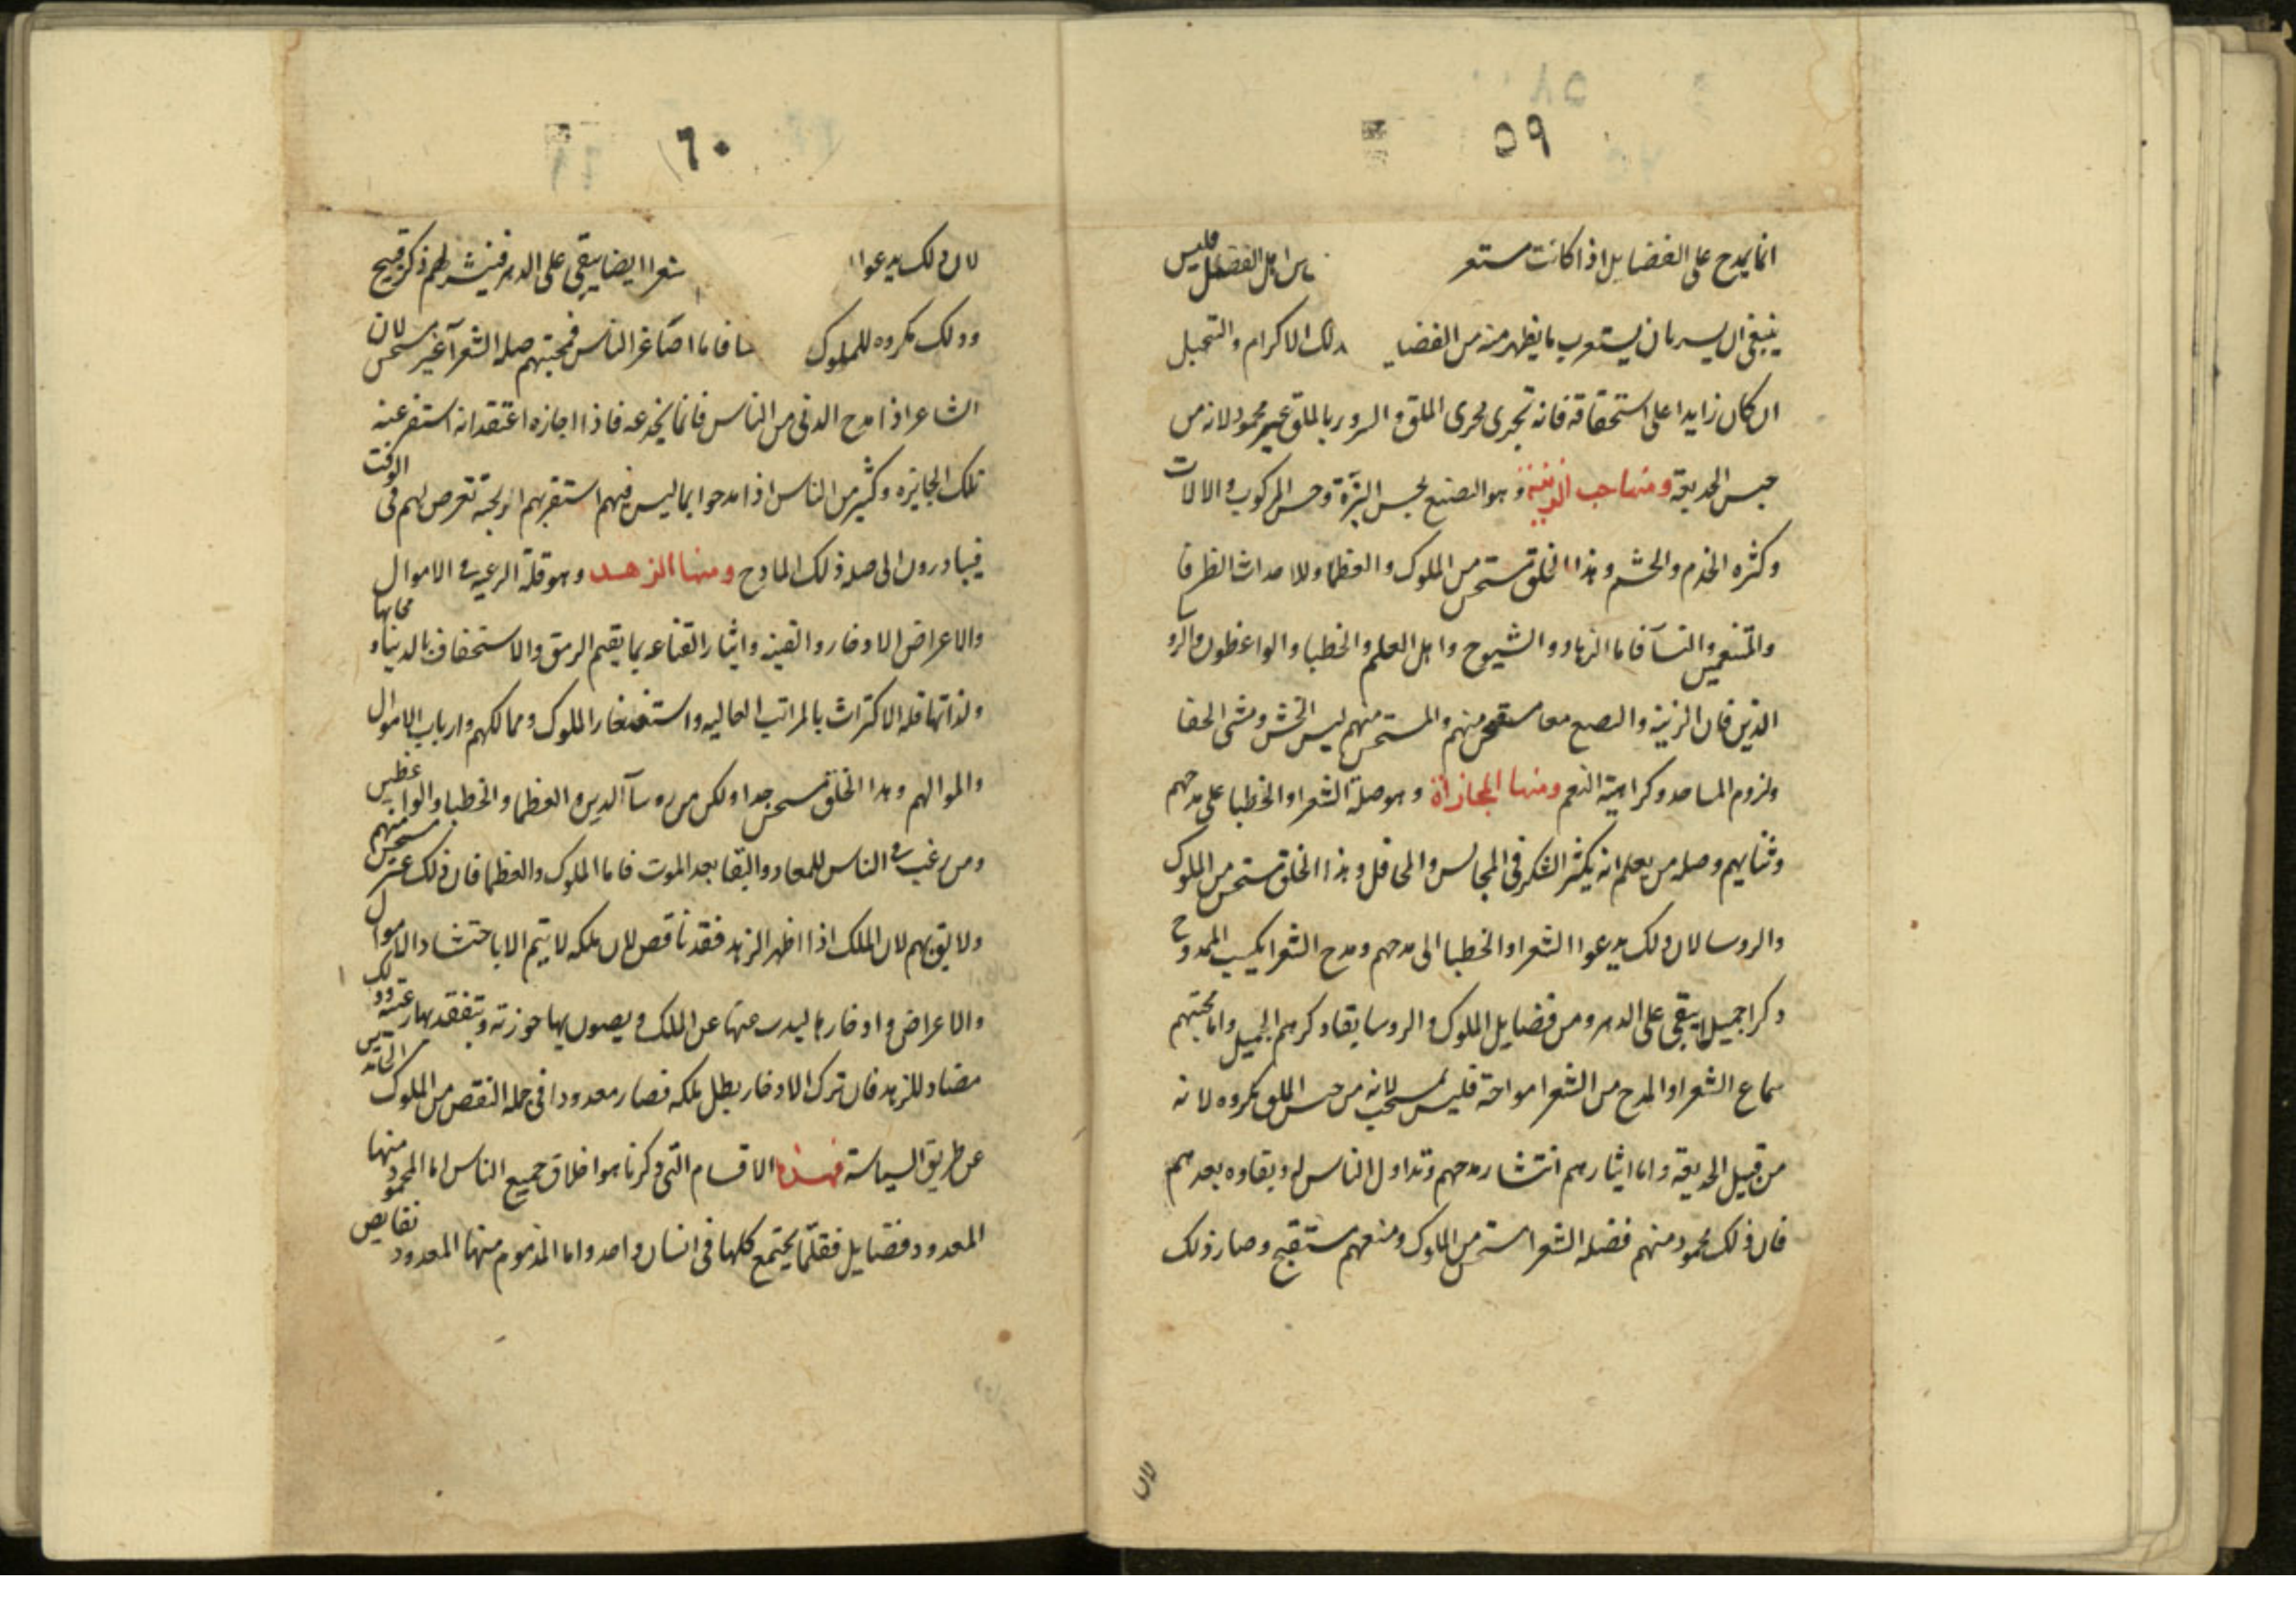 ٥٩
انما يمدح على الفضايل اذا كانت مستعر اهل الفضل فليس
ينبغى ان يسر بان يستعرب ما يظهر منه من الفضايـ ذلك الاكرام والتبجيل
ان كان زايدا على استحقاقه فانه تجرى مجرى الملق و السرور بالملق غير محمود لانه من
جنس الخديعة ومنها حب الزينة وهو التصنع بحسن البزة وحسن المركوب والالات
وكثره الخدم والحشم وهذا الخلق مستحسن من الملوك والعظما وللاحداث الظرفا
والمتنعمين والنسآ فاما الزهاد والشيوخ واهل العلم والخطبا والواعظون والرو
الدين فان الزينة والتصنع معا مستقبح منهم والمستحسن منهم لبس الخشن ومشى الحفا
ولزوم المساجد وكراهية التنعم ومنها المجازاة وهو صلة الشعرا والخطبا على مدحهم
وثنايهم وصله من يعلم انه يكثر الشكر فى المجالس والمحافل وهذا الخلق مستحسن من الملوك
والروسا لان ذلك يدعوا الشعرا والخطبا الى مدحهم ومدح الشعرا يكسب الممدوح
ذكرا جميلا يبقى على الدهر ومن فضايل الملوك والروسا بقا ذكرهم الجميل واما محبتهم
سماع الشعرا والمدح من الشعرا مواجهة فليس بمستحب لانه من جنس الملق مكروه لانه
من قبيل الخديعة واما ايثارهم انتشار مدحهم وتداول الناس له وبقاوه بعدهم
فان ذلك محمود منهم فصله الشعرا مستحسن من الملوك ومنعهم مستقبح وصار ذلك
لان
٦٠
لان ذلك يدعوا شعرا ايضا يبقى على الدهر فينشر لهم ذكر قبيح
وذلك مكروه للملوك فاما اصاغر الناس فمحبتهم صله الشعرآ غير مستحسن لان
الشاعر اذا مدح الدنى من الناس فانما يخدعه فاذا اجازه اعتقد انه استفرغ منه
تلك الجايزه وكثير من الناس اذا مدحوا بما ليس فيهم استفزهم الوقت
فيبادرون الى صله ذلك المادح ومنها الزهد وهو قلة الرغبة فى الاموال
والاعراض والادخار والقنية وايثار القناعه بما يقيم الرمق والاستخفاف بالدنيا ومحابها
ولذاتها وقله الاكتراث بالمراتب العاليه واستصغار الملوك وممالكهم وارباب الاموال
واموالهم وهذا الخلق مستحسن جدا ولكن من روسآ الدين والعظما والخطبا والواعظين
ومن رغب فى الناس للمعاد والبقا بعد الموت فاما الملوك والعظما فان ذلك غير مستحسن منهم
ولا يليق بهم لان الملك اذا اظهر الزهد فقد ناقص لان ملكه لا يتم الا باحتشاد الاموال
والاعراض وادخارها ليدب عنها عن الملك ويصون بها حوزته ويتفقد بها رعيته وذلك
مضاد للزهد فان ترك الادخار بطل ملكه فصار معدودا فى جمله النقص من الملوك الحايدين
عن طريق السياسة فهذه الاقسام التى ذكرنا هو اخلاق جميع الناس اما المحمود منها
المعدود فضايل فقلما يجتمع كلها فى انسان واحد واما المذموم منها المعدود نقايص